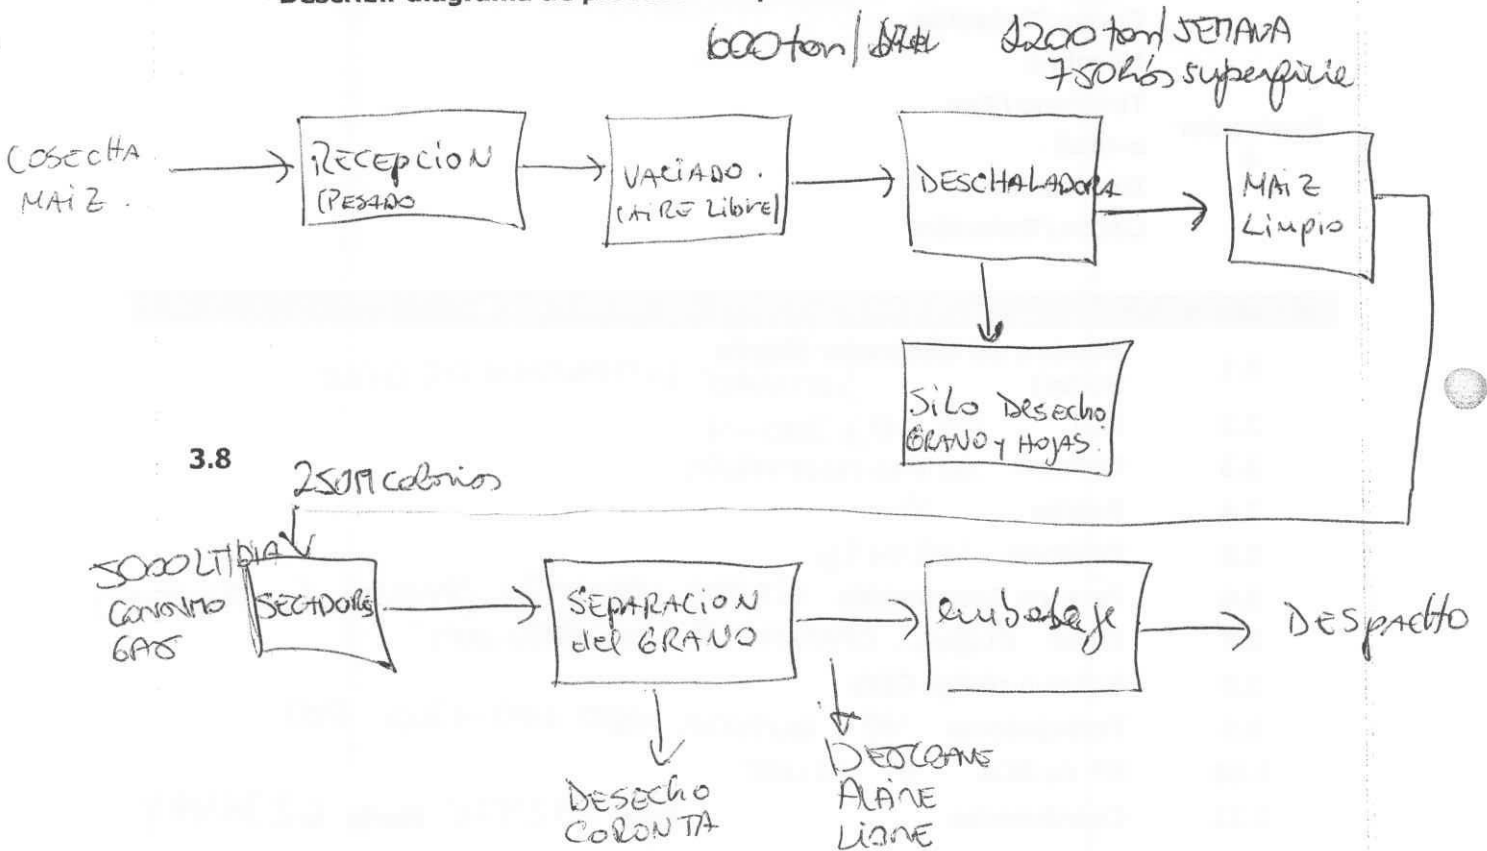 Describir diagrama de
600 ton/
1200 ton/ SEMANA
750 superficie
COSECHA
MAiZ.
RECEPCiON
(PESADO
VACiADO.
(AiRE Libre)
DESCHALADORA
MAiZ
Limpio
SiLo Desecho
GRANO y HOJAS.
3.8
250M calorias
5000 LT/DIA
GAS
SECADORS
SEPARACION
del GRANO
embalaje
DESpACHO
DESECHO
CORONTA
DESCGANE
AL AIRE
LIBRE